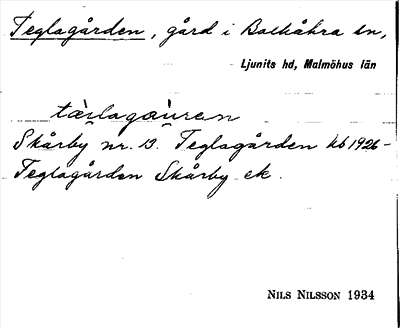 Teglagården, gård i Balkåkra sn,
Ljunits hd, Malmöhus län
tæ̀i̯lagàu̯ren
Skårby nr. 13. Teglagården kb 1926-
Teglagården Skårby ek.
NILS NILSSON 1934